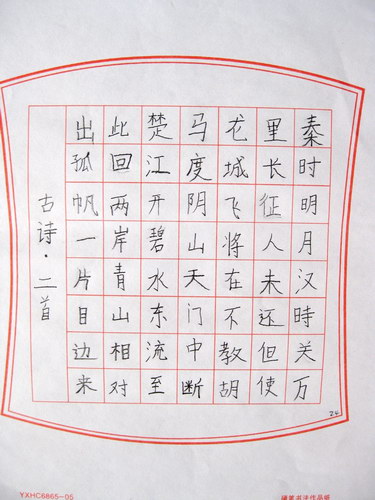 秦时明月汉時关万
里长征人未还但使
龙城飞将在不教胡
马度阴山天门中断
楚江开碧水东流至
此回两岸青山相对
出孤帆一片目边来
古诗·二首
24
YXHC6865-05
硬笔书法作品纸